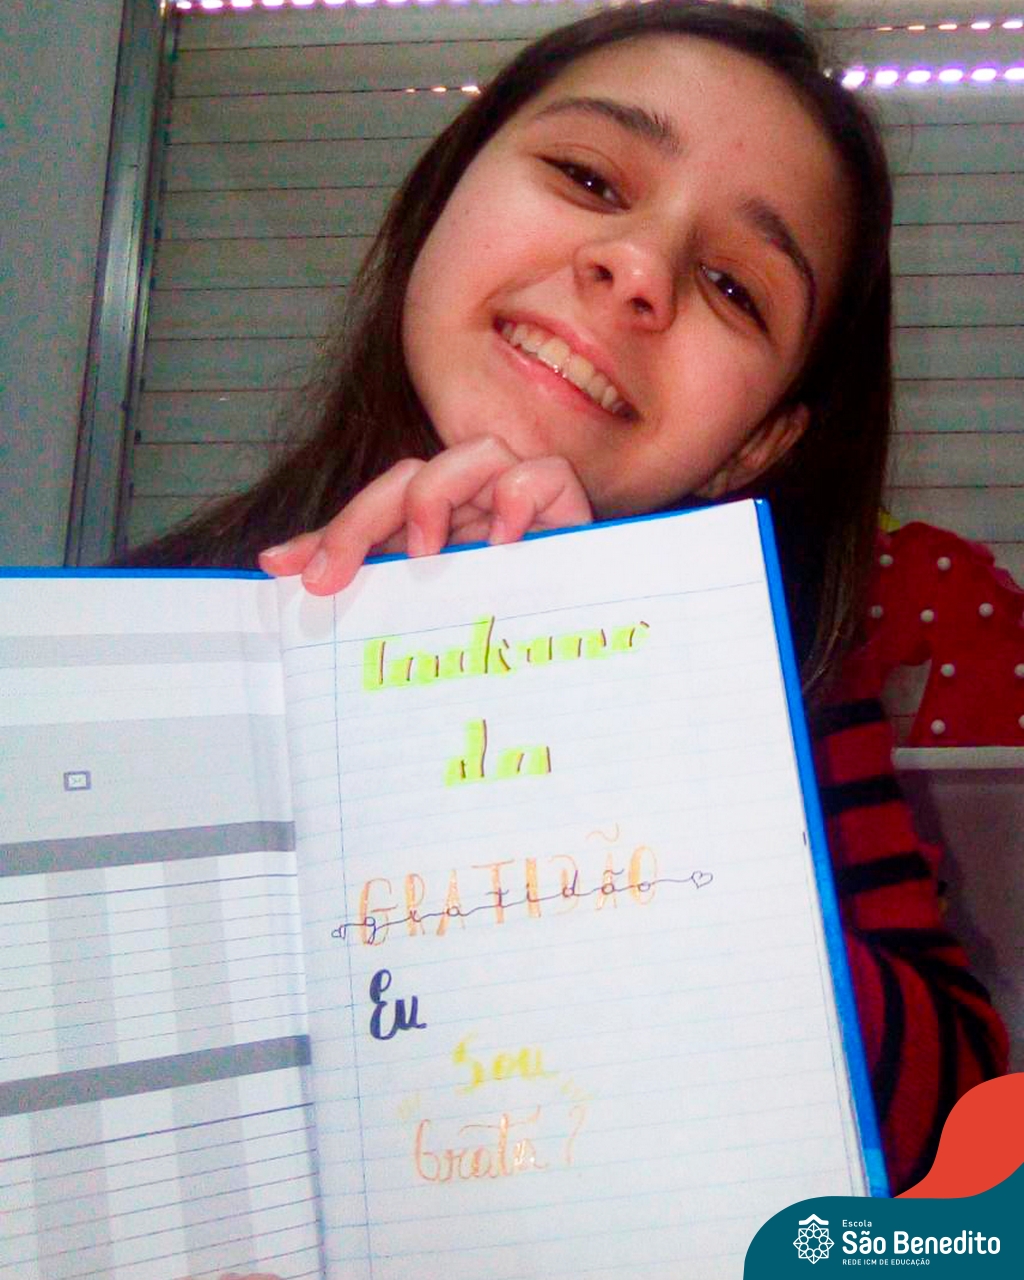 Caderno
da
GRATIDÃO
gratidão
Eu
Sou
Grata?
Escola
São Benedito
REDE ICM DE EDUCAÇÃO